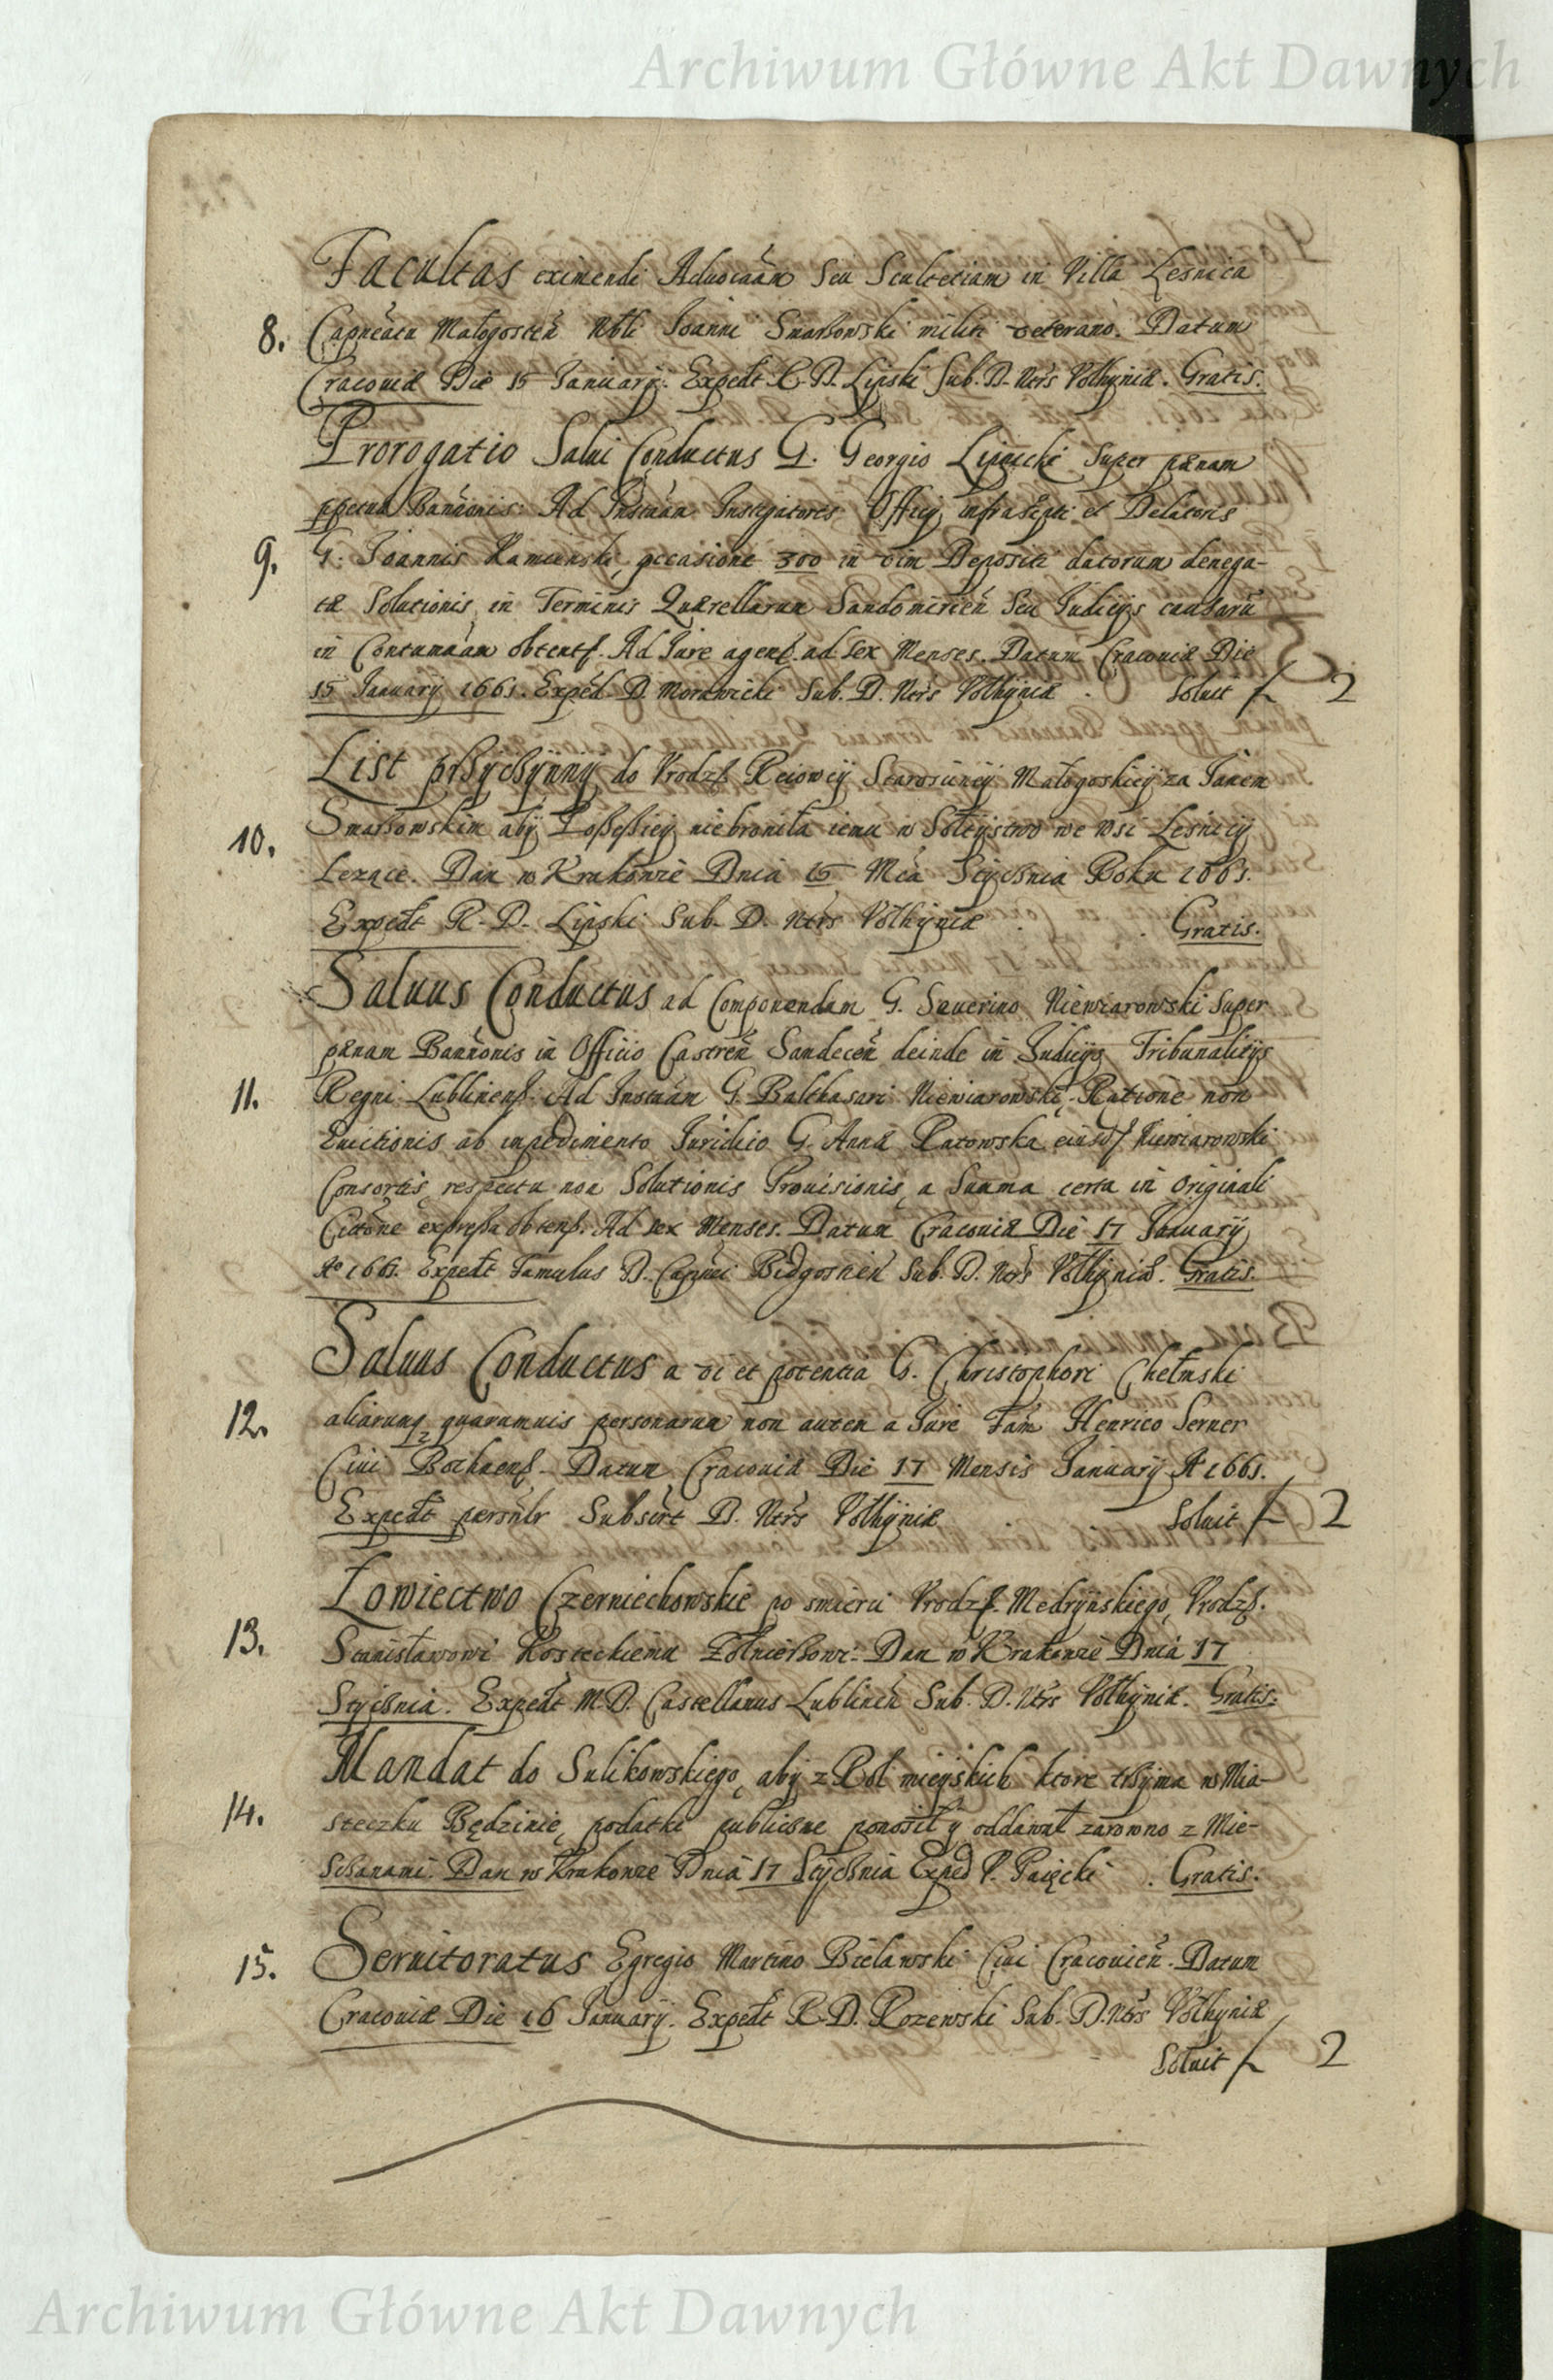 Archiwum Główne Akt Dawnych
Facultas eximendi Aduocaãm Seu Scultetiam in Villa Lesnica
8. Capnẽatu Małogosceñ Nbli Joanni Smarszowski militi veterano. Datum
Cracouiæ Die 15 January. Expedt R. D. Lipski Sub. D. Ntrs Volhyniæ. Gratis.
Prorogatio Salui Conductus G. Georgio Lipnicki Super pænam
ppetuæ Bannõnis. Ad Instañ Instigatoris Officy infrascpti et Delatoris
9. G. Joannis Kamienski, occasione 300 in vim Depositi datorum denega-
tæ Solutionis in Terminis Quærellarum Sandomirieñ Seu Judicys causarũ
in Contumaãm obtent. Ad Jure agend. ad Sex Menses. Datum Cracouiæ Die
15 January 1661. Exped. D. Morawicki Sub. D. Ntrs Volhyniæ. Soluit f 2
List przyczynny do Vrodz. Reiowey Starosciney Małogoskiey za Janem
Smarszowskim aby Possessiey niebroniła iemu w Sołtystwo we Wsi Lesnicy
10. Lezące. Dan w Krakowie Dnia 15 Mca Stycznia Roku 1661.
Expedt R. D. Lipski Sub. D. Ntrs Volhyniæ. Gratis.
Saluus Conductus ad Componendam G. Seuerino Niewiarowski Super
pænam Bannõnis in Officio Castreñ Sandeceñ deinde in Judicys Tribunalitys
11. Regni Lublinens. Ad Instañ G. Balthasari Niewiarowski, Ratione non
Euictionis ab impedimento Juridico G. Anna Ratowska eiusd. Niewiarowski
Consortis respectu non Solutionis Prouisionis a Summa certa in Originali
Citõne expressa obtens. Ad Sex Menses. Datum Cracouiæ Die 17 January
Aº 1661. Expedt Famulus D. Capnei Bidgostieñ Sub. D. Ntrs Volhyniæ. Gratis.
Saluus Conductus a vi et potentia G. Christophori Chełmski
12. aliarumq quarumuis personarum non autem a Jure Fam Henrico Serner
Ciui Bochnens. Datum Cracouiæ Die 17 Mensis January Aº 1661.
Expedt persnlr Subscrt D. Ntrs Volhyniæ Soluit f 2
Łowiectwo Czerniechowskie po smierci Vrodz. Medrynskiego, Vrodz.
13. Stanisławowi Kosteckiemu Zołnierzowi. Dan w Krakowie Dnia 17
Stycznia. Expedt M. D. Castellanus Lublineñ Sub. D. Ntrs Volhyniæ. Gratis.
Mandat do Sulikowskiego, aby z Rol mieyskich ktore trzyma w Mia-
14. steczku Będzinie, podatki publiczne ponosił y oddawał zarowno z Mie-
sczanami. Dan w Krakowie Dnia 17 Stycznia Exped P. Paięcki. Gratis.
15. Seruitoratus Egregio Martino Bielawski Ciui Cracouieñ. Datum
Cracouiæ Die 16 January. Expedt R. D. Rozewski Sub. D. Ntrs Volhyniæ
Soluit f 2
Archiwum Główne Akt Dawnych